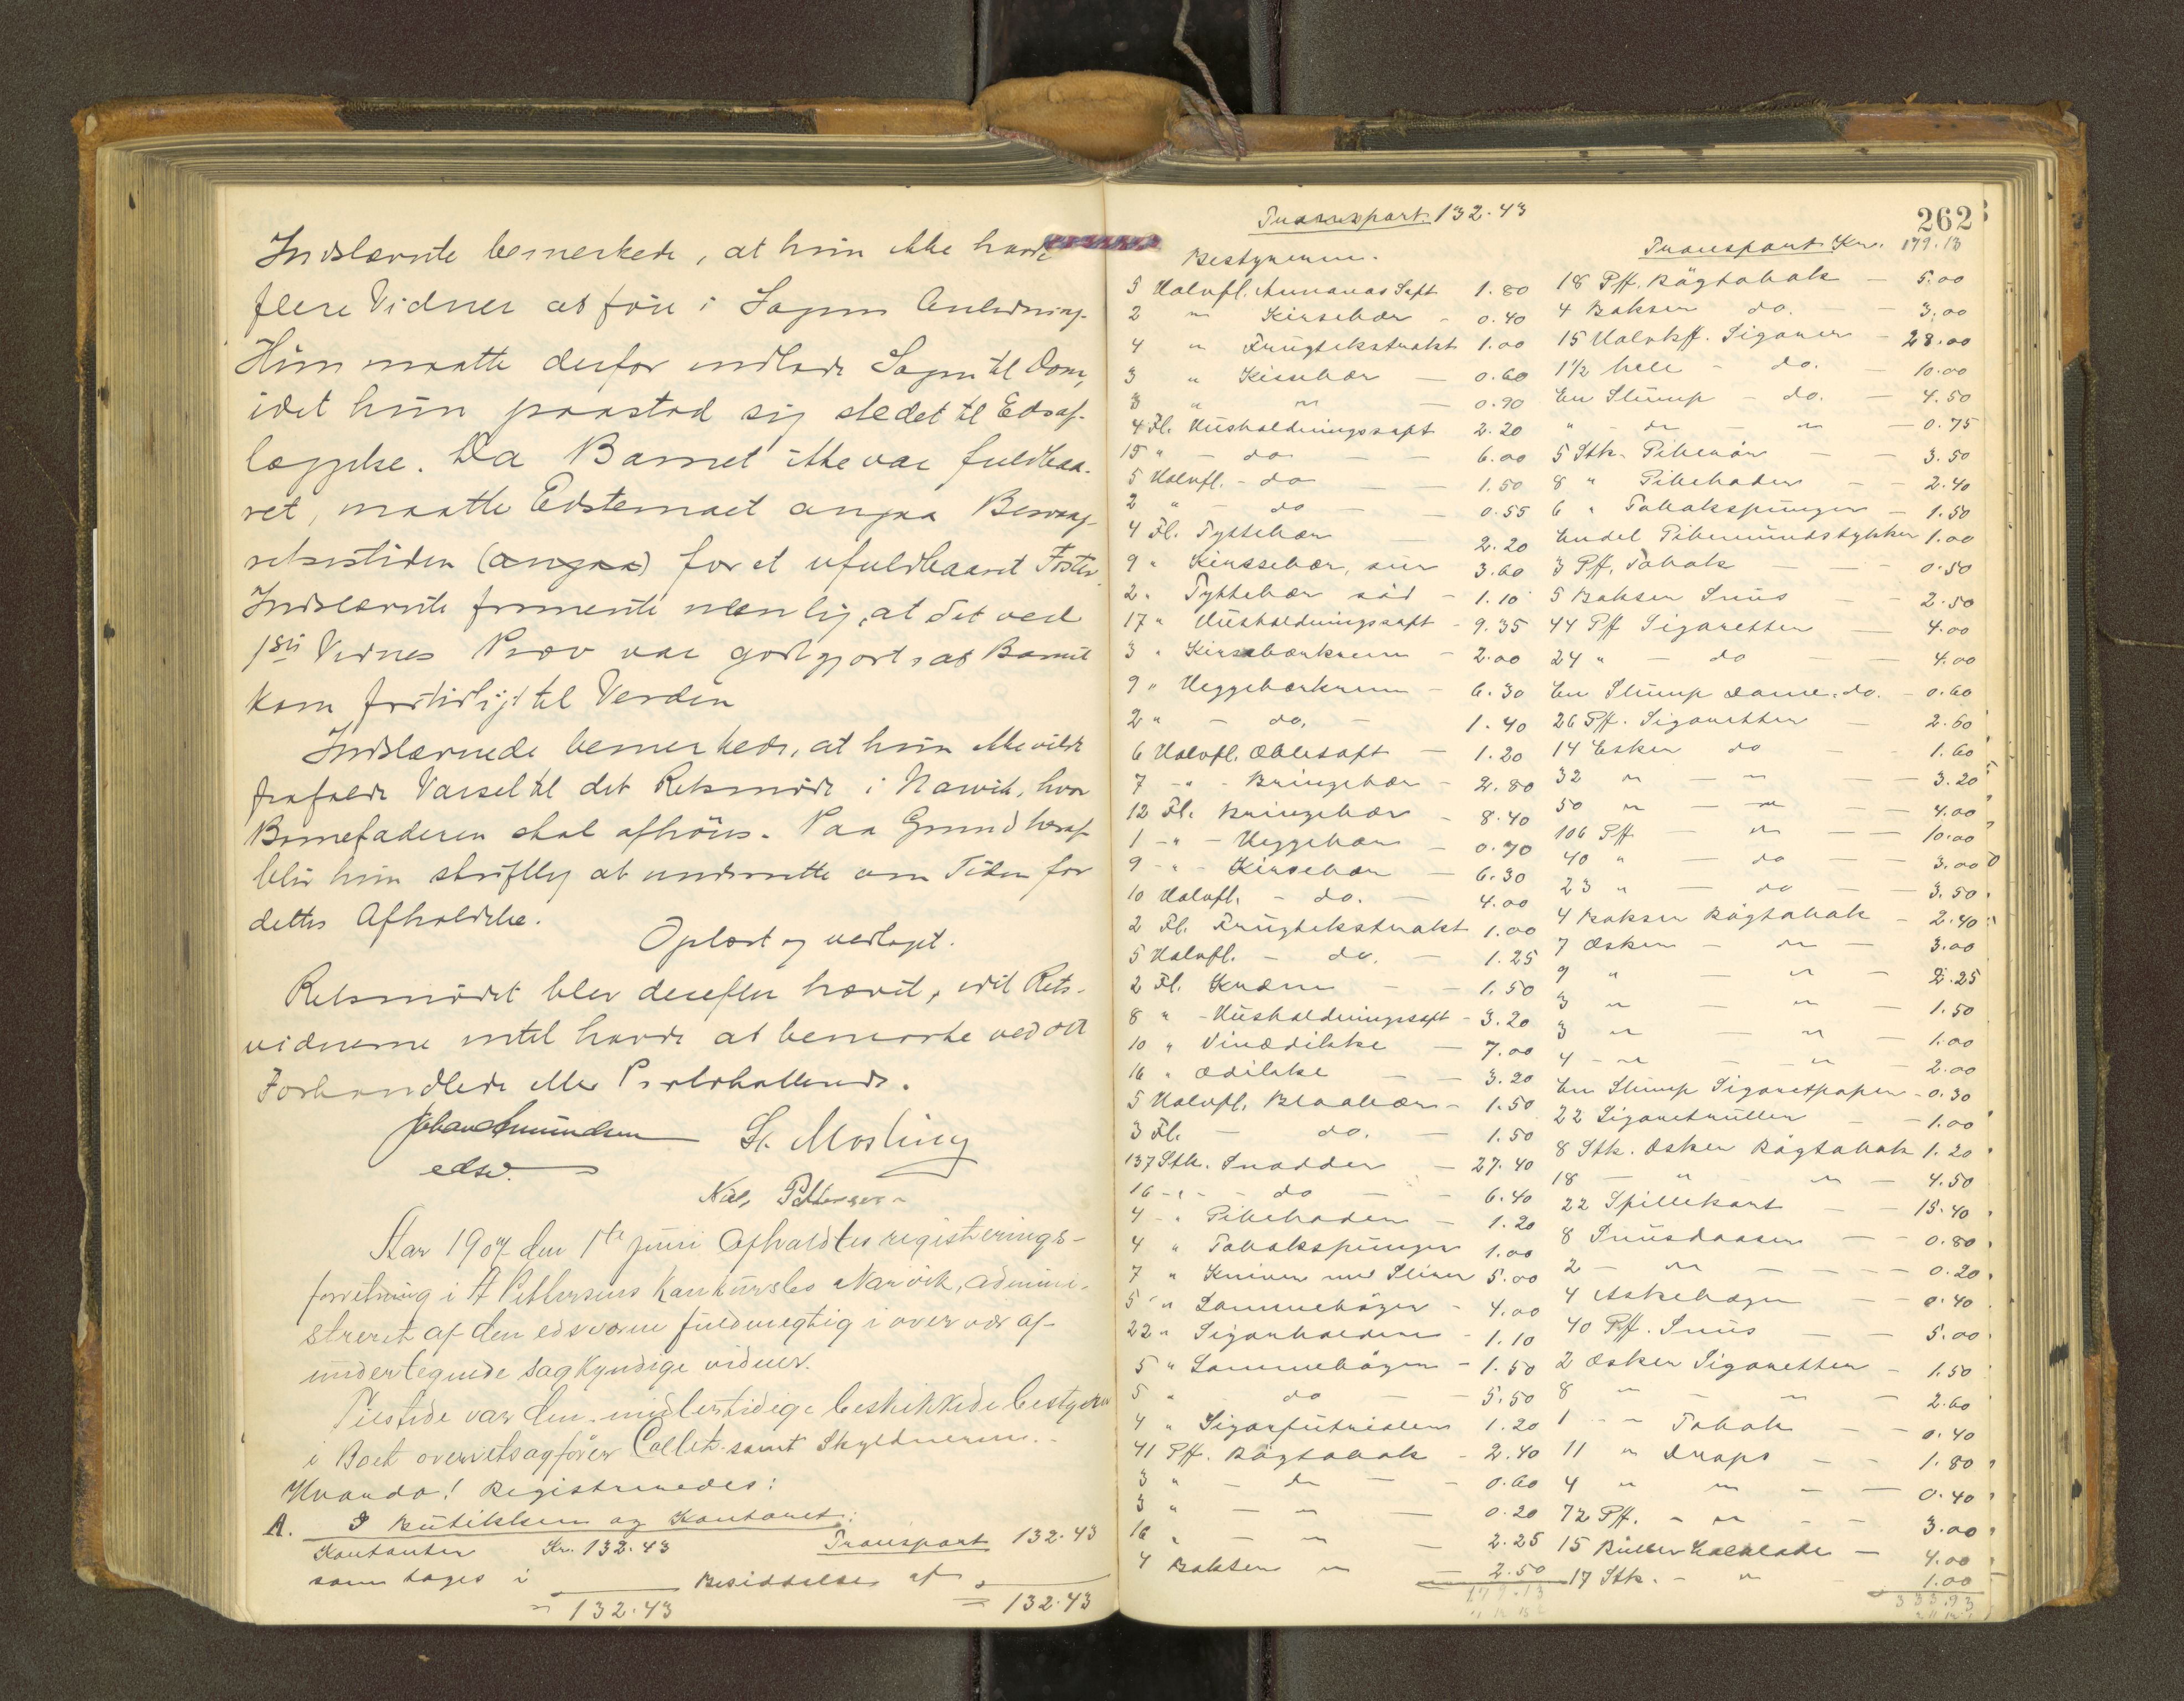 Indstevnte bemerkede, at hun ikke havde
flere Vidner at føre i Sagens Anledning.
Hun maatte derfor indlade Sagen til Dom,
idet hun paastod sig stedet til Edsaf-
læggelse. Da Barnet ikke var fuldbaa-
ret, maatte Edstemaet angaa Besvang-
relsestiden (angaa) for et ufuldbaaret Foster.
Indstevnte formente nemlig, at det ved
1ste Vidnes Prov var godtgjort, at Barnet
kom for tidligt til Verden
Indstevnede bemerkede, at hun ikke vilde
frafalde Varsel til det Retsmøde i Narvik, hvor
Barnefaderen skal afhøres. Paa Grund heraf
blir hun skriftlig at underrette om Tiden for
dettes Afholdelse.
Oplæst og vedtaget.
Retsmødet blev derefter hævet, idet Rets-
vidnerne intet havde at bemærke ved det
Forhandlede eller Protokollerede.
Johan Amundsen St. Mosling
edsv.
Nils Pettersen
Aar 1907 den 1te juni afholdtes registrerings-
forretning i A Pettersens konkursbo Narvik, admini-
streret af den edsvorne fuldmegtig i overvær af
undertegnede sagkyndige vidner.
Tilstede var den midlertidige beskikkede bestyrer
i Boet overretssagfører Collet samt Skyldneren.
Hvorda! Registreredes:
A. I Butikken og Kontoret:
Kontanter Kr. 132.43 Transport 132.43
som toges i Besiddelse af
= 132.43 = 132.43
262
Transport 132.43
Bestyreren.
5 Halvfl. Annanas Saft 1.80
2 " Kirsebær - 0.40
4 " Frugtekstrakt 1.00
3 " Kirsebær - 0.60
3 " " - 0.90
4 Fl. Husholdningssaft 2.20
15 " - do - 6.00
5 Halvfl. - do - 1.50
2 " - do - 0.55
4 Fl. Tyttebær 2.20
9 " Kirssebær, sur 3.60
2 " Tyttebær sød - 1.10
17 " Husholdningssaft - 9.35
3 " Kirsebærkrem - 2.00
9 " Heggebærkrem - 6.30
2 " - do. - 1.40
6 Halvfl. Æblesaft - 1.20
7 - " - Bringebær - 2.80
12 Fl. Bringebær - 8.40
1 - " - Heggebær - 0.70
9 - " - Kirsebær - 6.30
10 Halvfl. - do. - 4.00
2 Fl. Frugtekstrakt 1.00
5 Halvfl. - do. - 1.25
2 Fl. Kræm - 1.50
8 " - Husholdningssaft - 3.20
10 " Vinædikke - 7.00
16 " Ædikke - 3.20
5 Halvfl. Blaabær - 1.50
3 Fl. - do. - 1.50
137 Stk. Snadder - 27.40
16 - " - do - 6.40
4 - " Pibehoder - 1.20
4 " Tobakspunger 1.00
7 " Kniver med Slirer 5.00
5 " Lommebøger - 4.00
22 " Sigarholdere - 1.10
5 " Lommebøger - 1.50
5 " do - 5.50
4 " Sigarfutrialer 1.20
41 Pk. Røgtobak - 2.40
3 " - do - 0.60
3 " - " - 0.20
16 " - " - 2.25
4 Bokser " - 2.50
179.13
Transport Kr. 179.13
18 Pk. Røgtobak - 5.00
4 Bokser do. - 3.00
15 Halvk. Sigarer - 28.00
1 1/2 hele - do. - 10.00
En Slump - do. - 4.50
" - " - " - 0.75
5 Stk. Piberør - 3.50
8 " Pibehoder - 2.40
6 " Tobakspunger - 1.50
Endel Pibemundstykker 1.00
3 Pk. Tobak - 0.50
5 Bokser Snus - 2.50
44 Pk Sigaretter - 4.00
24 " - do - 4.00
En Slump Dame. do. - 0.60
26 Pk. Sigaretter - 2.60
14 Esker do - 1.60
32 " - " - 3.20
50 " - " - 4.00
106 Pk - " - 10.00
40 " - do - 3.00
23 " - do - 3.50
4 Bokser Røgtobak - 2.40
7 Æsker - " - 3.00
9 " - " - 2.25
3 " - " - 1.50
3 " " - 1.00
4 - " - " - 2.00
En Slump Sigaretpapir - 0.30
22 Sigaretruller - 1.00
8 Stk. Æsker Røgtobak 1.20
18 - " - " - 4.50
22 Spillekort - 13.40
8 Snusdaaser - 0.80
2 - " - 0.20
4 Askebæger - 0.40
40 Pk. Snus - 5.00
2 Æsker Sigaretter - 1.50
8 " - " - 2.60
1 " Tobak - 0.40
11 " Drops - 1.80
4 " " - 0.40
72 Pk. - " - 3.00
15 Ruller Chokolade - 4.00
17 Stk. - " - 1.00
333.93